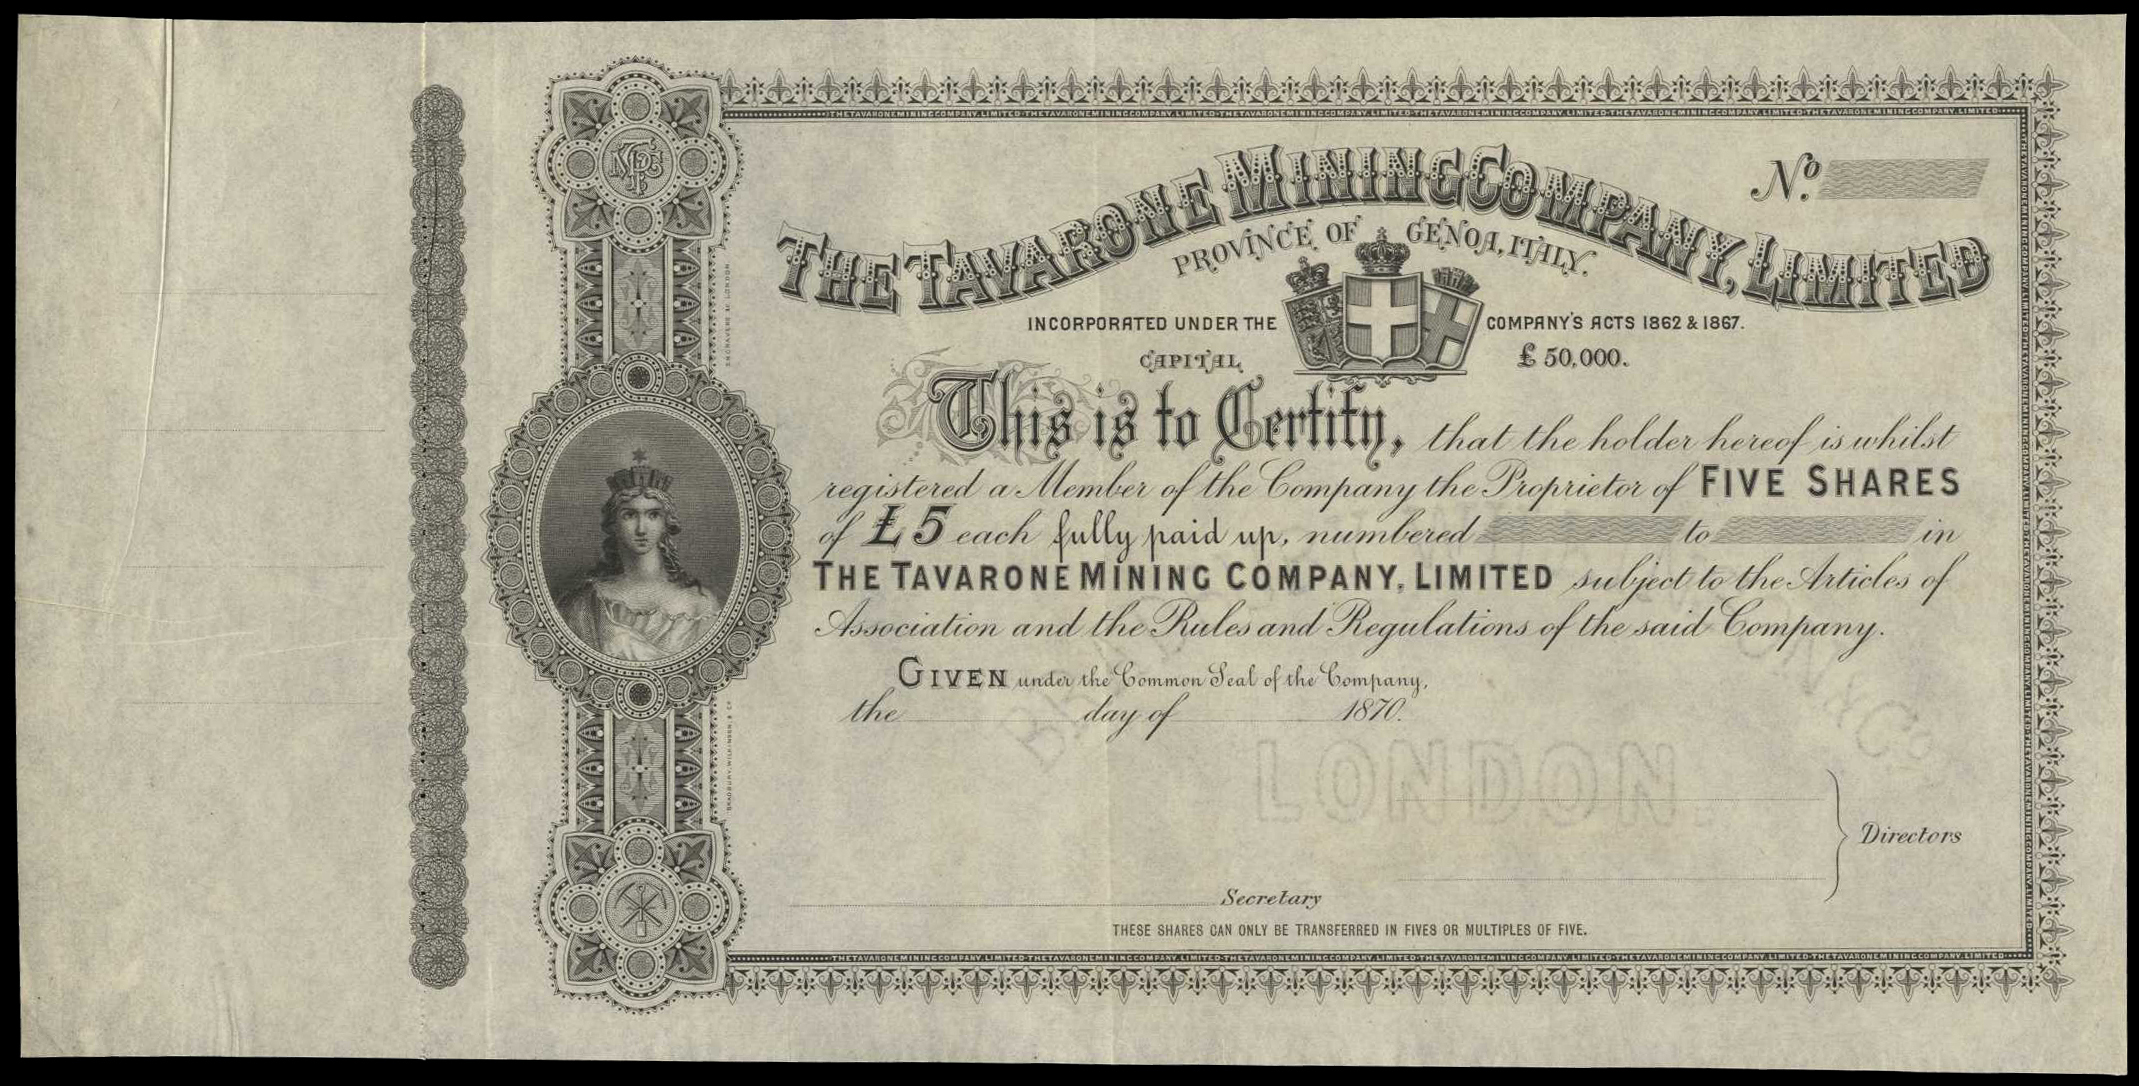 THE TAVARONE MINING COMPANY, LIMITED
Nº
PROVINCE OF GENOA, ITALY.
INCORPORATED UNDER THE COMPANY'S ACTS 1862 & 1867.
CAPITAL £ 50,000.
This is to Certify, that the holder hereof is whilst
registered a Member of the Company the Proprietor of FIVE SHARES
of £5 each fully paid up, numbered to in
THE TAVARONE MINING COMPANY, LIMITED subject to the Articles of
Association and the Rules and Regulations of the said Company.
GIVEN under the Common Seal of the Company,
the day of 1870.
LONDON.
Directors
Secretary
THESE SHARES CAN ONLY BE TRANSFERRED IN FIVES OR MULTIPLES OF FIVE.
BRADBURY, WILKINSON & Cº
ENGRAVERS &c LONDON.
THE TAVARONE MINING COMPANY, LIMITED·THE TAVARONE MINING COMPANY, LIMITED·THE TAVARONE MINING COMPANY, LIMITED·THE TAVARONE MINING COMPANY, LIMITED·THE TAVARONE MINING COMPANY, LIMITED·THE TAVARONE MINING COMPANY, LIMITED·THE TAVARONE MINING COMPANY, LIMITED·THE TAVARONE MINING COMPANY, LIMITED